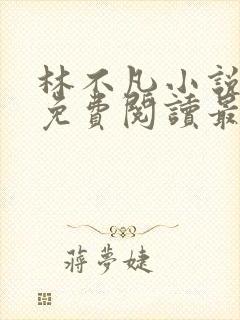 林不凡小說
免費閱讀最
蔣夢婕